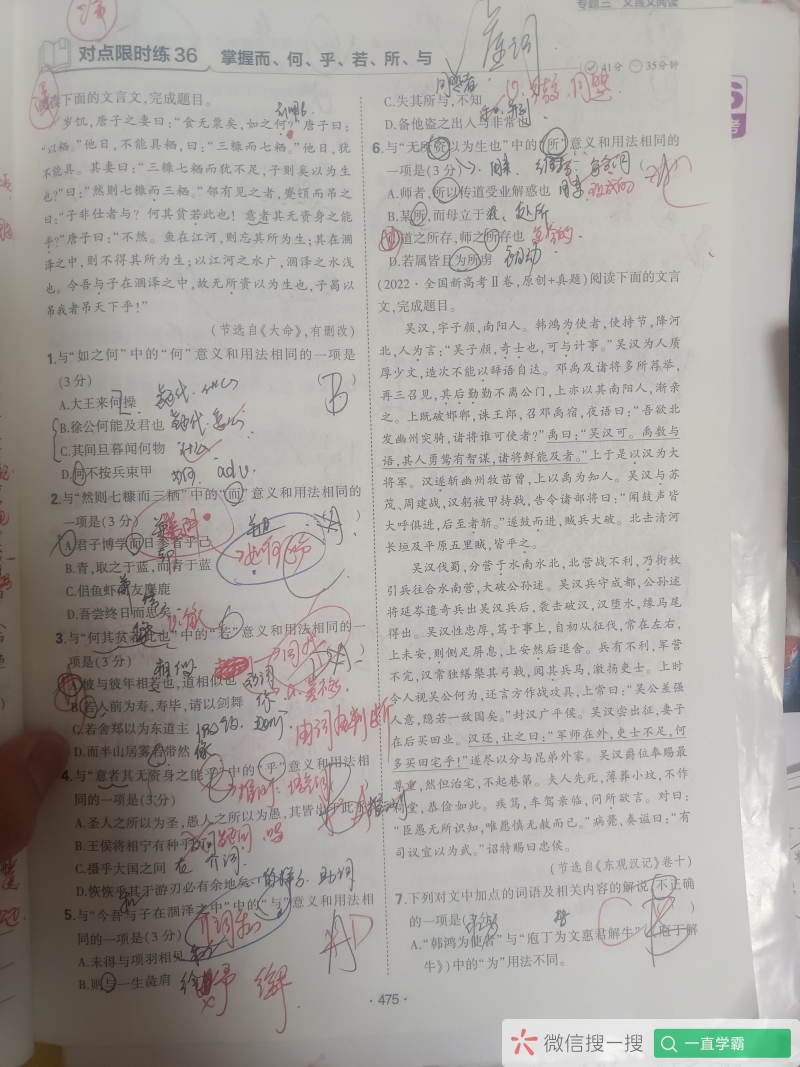 专题三 文言文阅读
对点限时练36 掌握而、何、乎、若、所、与
41分 35分钟
虚词
阅读下面的文言文,完成题目。
岁饥,唐子之妻曰:“食无粟矣,如之何?”唐子曰:
“以粞。”他日,不能具粞,曰:“三糠而七粞。”他日,犹
不能具。其妻曰:“三糠七粞而犹不足,子则奚以为生
也?”曰:“然则七糠而三粞。”邻有见之者,蹙頞而吊之
曰:“子非仕者与?何其贫若此也!意者其无资身之能
乎?”唐子曰:“不然。鱼在江河,则忘其所为生;其在涸
泽之中,则不得其所为生;以江河之水广,涸泽之水浅
也。今吾与子在涸泽之中,故无所资以为生也,子曷以
吊我者吊天下乎!”
(节选自《大命》,有删改)
1.与“如之何”中的“何”意义和用法相同的一项是
(3分) ( )
B
A.大王来何操
B.徐公何能及君也
C.其间旦暮闻何物 什么
D.何不按兵束甲 如何 adv.
2.与“然则七糠而三粞”中的“而”意义和用法相同的
一项是(3分) ( )
A.君子博学而日参省乎己
B.青,取之于蓝,而青于蓝
C.侣鱼虾而友麋鹿
D.吾尝终日而思矣
3.与“何其贫若此也”中的“若”意义和用法相同的一
项是(3分) ( )
A.彼与彼年相若也,道相似也
B.若入前为寿,寿毕,请以剑舞 你
C.若舍郑以为东道主
D.而半山居雾若带然 像
4.与“意者其无资身之能乎”中的“乎”意义和用法相
同的一项是(3分) ( )
A.圣人之所以为圣,愚人之所以为愚,其皆出于此乎
B.王侯将相宁有种乎
C.摄乎大国之间 在 介词
D.恢恢乎其于游刃必有余地矣 助词
5.与“今吾与子在涸泽之中”中的“与”意义和用法相
同的一项是(3分) ( )
A.未得与项羽相见
B.则与一生彘肩
C.失其所与,不知
D.备他盗之出入与非常也
6.与“无所资以为生也”中的“所”意义和用法相同的
一项是(3分) ( )
A.师者,所以传道受业解惑也
B.某所,而母立于兹 处所
C.道之所存,师之所存也
D.若属皆且为所虏 被动
(2022·全国新高考Ⅱ卷,原创+真题)阅读下面的文言
文,完成题目。
吴汉,字子颜,南阳人。韩鸿为使者,使持节,降河
北,人为言:“吴子颜,奇士也,可与计事。”吴汉为人质
厚少文,造次不能以辞语自达。邓禹及诸将多所荐举,
再三召见,其后勤勤不离公门,上亦以其南阳人,渐亲
之。上既破邯郸,诛王郎,召邓禹宿,夜语曰:“吾欲北
发幽州突骑,诸将谁可使者?”禹曰:“吴汉可。禹数与
语,其人勇鸷有智谋,诸将鲜能及者。”上于是以汉为大
将军。汉遂斩幽州牧苗曾,上以禹为知人。吴汉与苏
茂、周建战,汉躬被甲持戟,告令诸部将曰:“闻鼓声皆
大呼俱进,后至者斩。”遂鼓而进,贼兵大破。北击清河
长垣及平原五里贼,皆平之。
吴汉伐蜀,分营于水南水北,北营战不利,乃衔枚
引兵往合水南营,大破公孙述。吴汉兵守成都,公孙述
将延岑遣奇兵出吴汉兵后,袭击破汉,汉堕水,缘马尾
得出。吴汉性忠厚,笃于事上,自初从征伐,常在左右,
上未安,则侧足屏息,上安然后退舍。兵有不利,军营
不完,汉常独缮檠其弓戟,阅其兵马,激扬吏士。上时
令人视吴公何为,还言方作战攻具,上常曰:“吴公差强
人意,隐若一敌国矣。”封汉广平侯。吴汉尝出征,妻子
在后买田业。汉还,让之曰:“军师在外,吏士不足,何
多买田宅乎!”遂尽以分与昆弟外家。吴汉爵位奉赐最
尊重,然但治宅,不起巷第。夫人先死,薄葬小坟,不作
祠堂,恭俭如此。疾笃,车驾亲临,问所欲言。对曰:
“臣愚无所识知,唯愿慎无赦而已。”病薨,奏谥曰:“有
司议宜以为武。”诏特赐曰忠侯。
(节选自《东观汉记》卷十)
7.下列对文中加点的词语及相关内容的解说,不正确
的一项是(3分) ( )
A.“韩鸿为使者”与“庖丁为文惠君解牛”(《庖丁解
牛》)中的“为”用法不同。
·475·
微信搜一搜 一直学霸